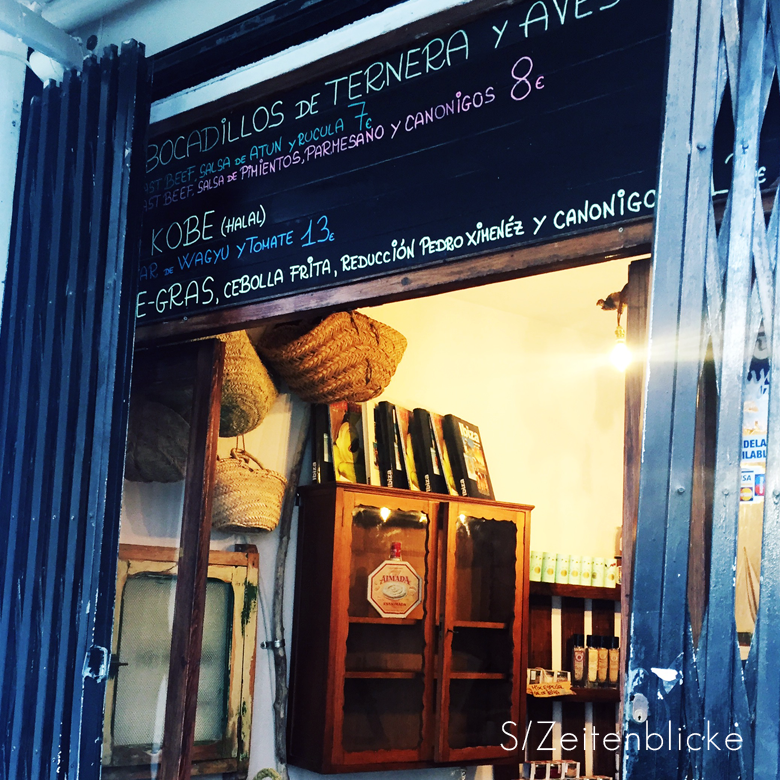 BOCADiLLOS DE TERNERA Y AVES
AST BEEF. SALSA DE ATUN Y RUCULA 7€
AST BEEF. SALSA DE PiMiENTOS, PARMESANO Y CANONiGOS 8€
KOBE (HALAL)
AR DE WAGYU Y TOMATE 13€
E-GRAS, CEBOLLA FRiTA, REDUCCiÓN PEDRO XiMENÉZ Y CANONiGO
ibiza
AiMADA
DELA
ILABL
VISA
S/Zeitenblicke